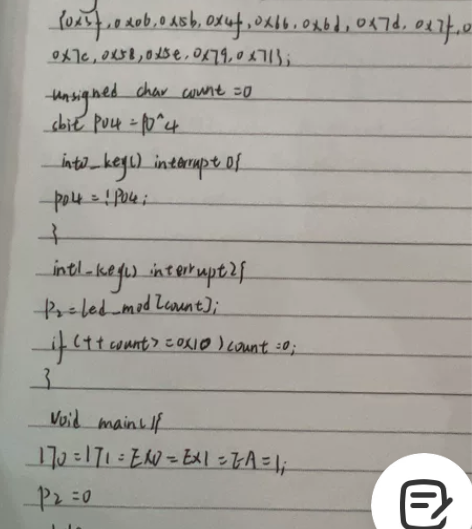 {0x3f,0x0b,0x5b,0x4f,0x66,0x6d,0x7d,0x7f,0
0x7c,0x58,0x5e,0x79,0x71};
unsigned char count=0
sbit P04=P0^4
int0_key() interrupt 0{
P04=!P04;
}
int1_key() interrupt 2{
P2=led_mod[count];
if (++count>=0x10) count=0;
}
void main(){
IT0=IT1=EX0=EX1=EA=1;
P2=0